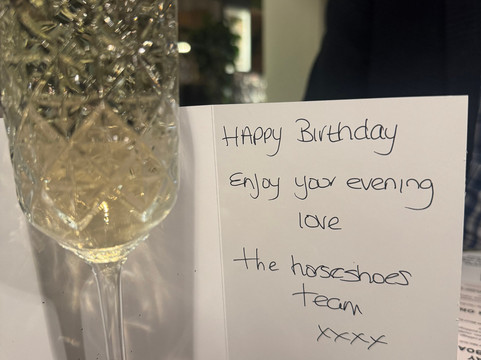 HAPPY Birthday
Enjoy your evening
love
the horseshoes
team
xxxx